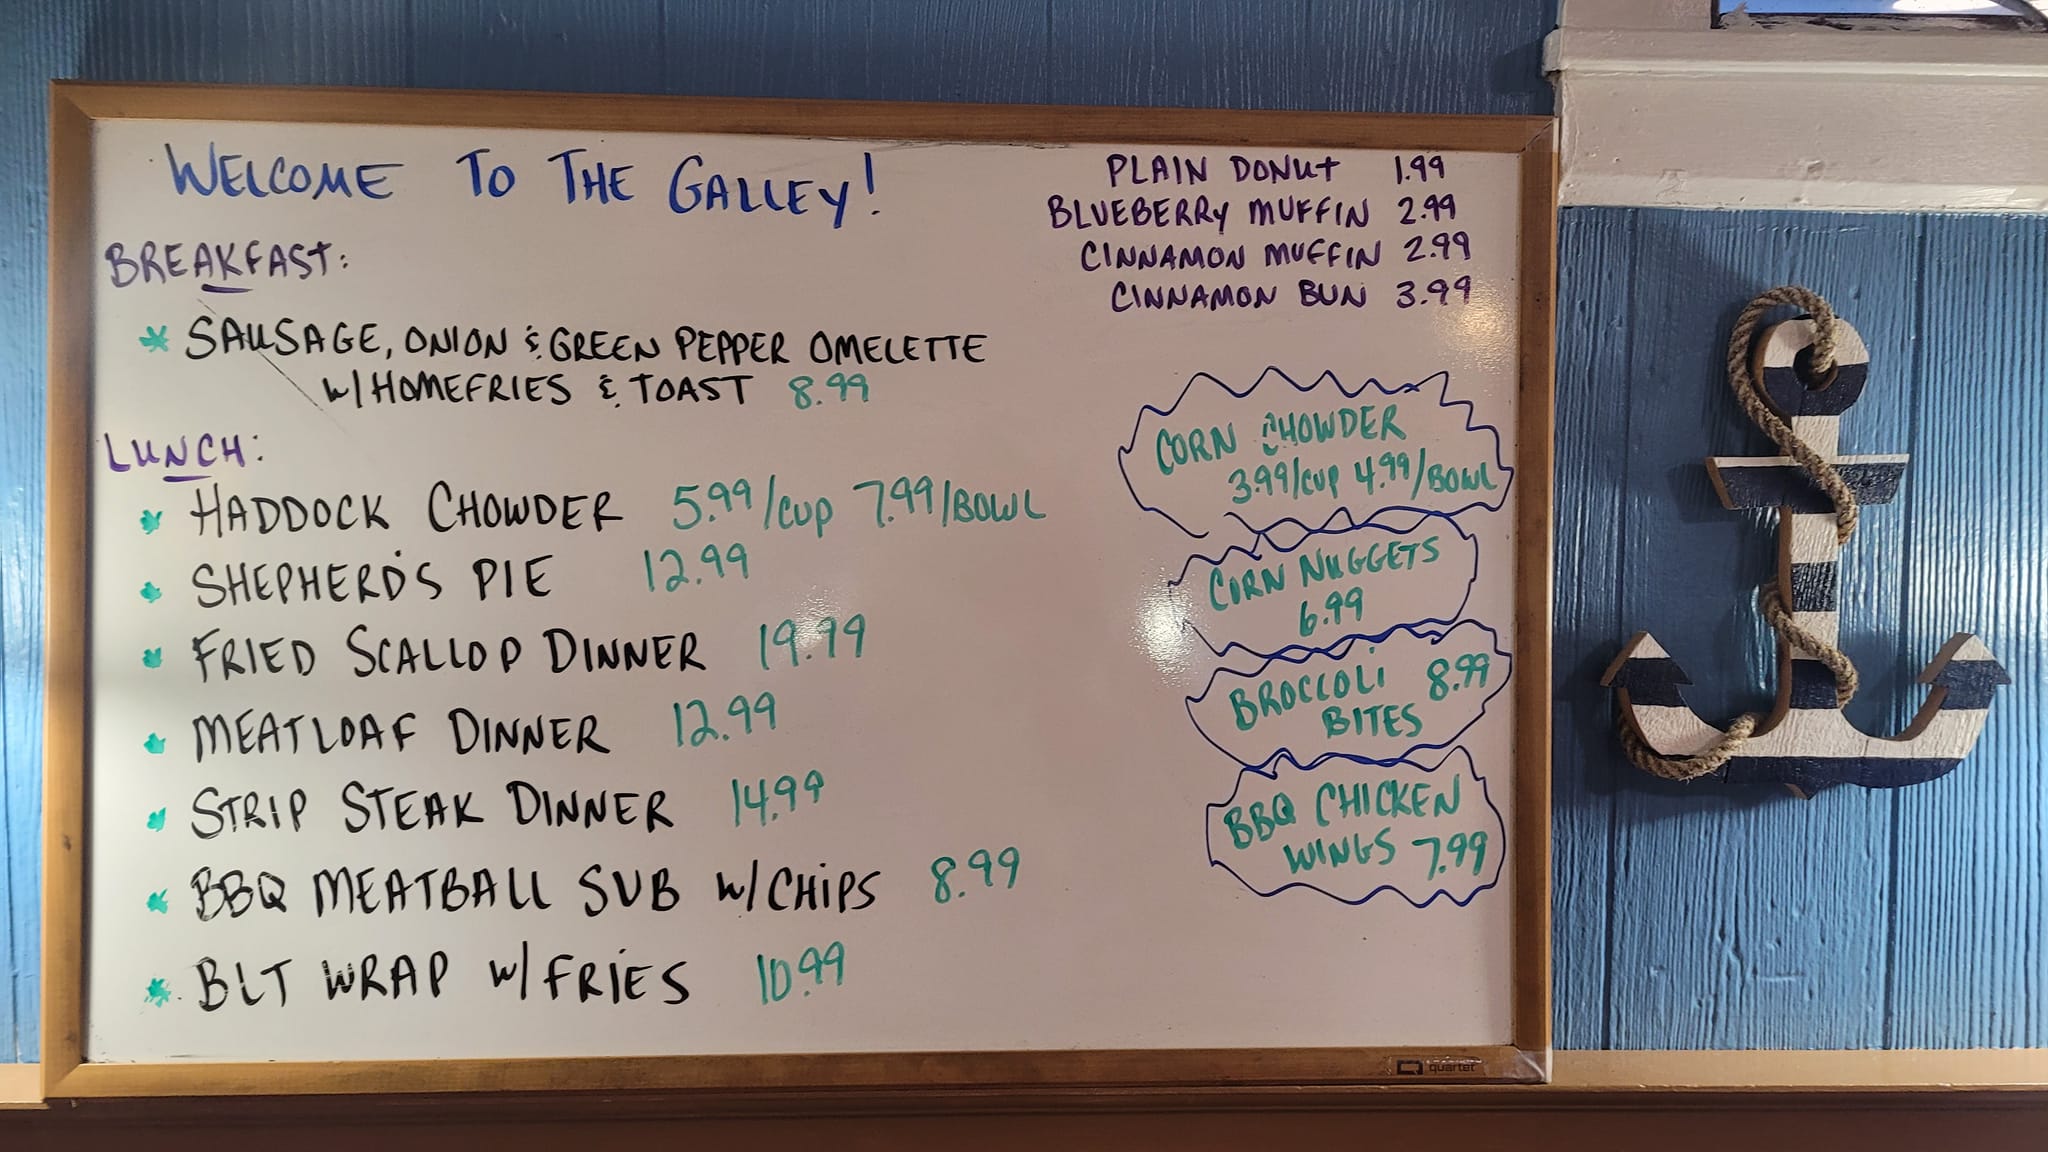 WELCOME TO THE GALLEY!
BREAKFAST:
* SAUSAGE, ONION & GREEN PEPPER OMELETTE
W/ HOMEFRIES & TOAST 8.99
LUNCH:
* HADDOCK CHOWDER 5.99/CUP 7.99/BOWL
* SHEPHERD'S PIE 12.99
* FRIED SCALLOP DINNER 19.99
* MEATLOAF DINNER 12.99
* STRIP STEAK DINNER 14.99
* BBQ MEATBALL SUB W/ CHIPS 8.99
* BLT WRAP W/ FRIES 10.99
PLAIN DONUT 1.99
BLUEBERRY MUFFIN 2.99
CINNAMON MUFFIN 2.99
CINNAMON BUN 3.99
CORN CHOWDER
3.99/CUP 4.99/BOWL
CORN NUGGETS
6.99
BROCCOLI 8.99
BITES
BBQ CHICKEN
WINGS 7.99
quartet